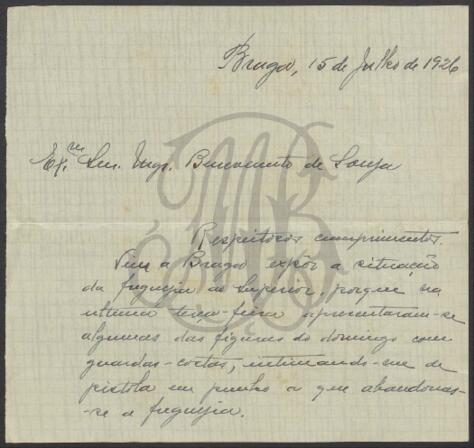 Braga, 15 de Julho de 1926
Ex.mo Snr. Engr. Benevenuto de Souza
Respeitosos cumprimentos.
Vim a Braga expôr a situação
da freguezia ao Superior, porque na
ultima terça-feira apresentaram-se
algumas das figuras do domingo com
guardas-costas, intimando-me de
pistola em punho a que abandonas-
-se a freguezia.